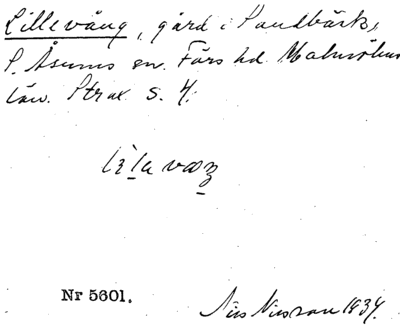 Lillevång, gård i Sandbäck,
S. Åsums sn. Färs hd. Malmöhus
län. Strax S. Y.
Nr 5601.
Nils Nilsson 1934.